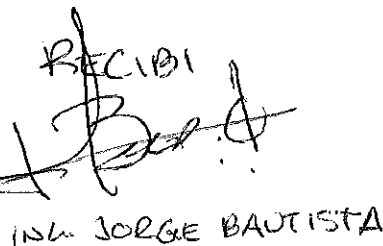 RECIBI
ING. JORGE BAUTISTA